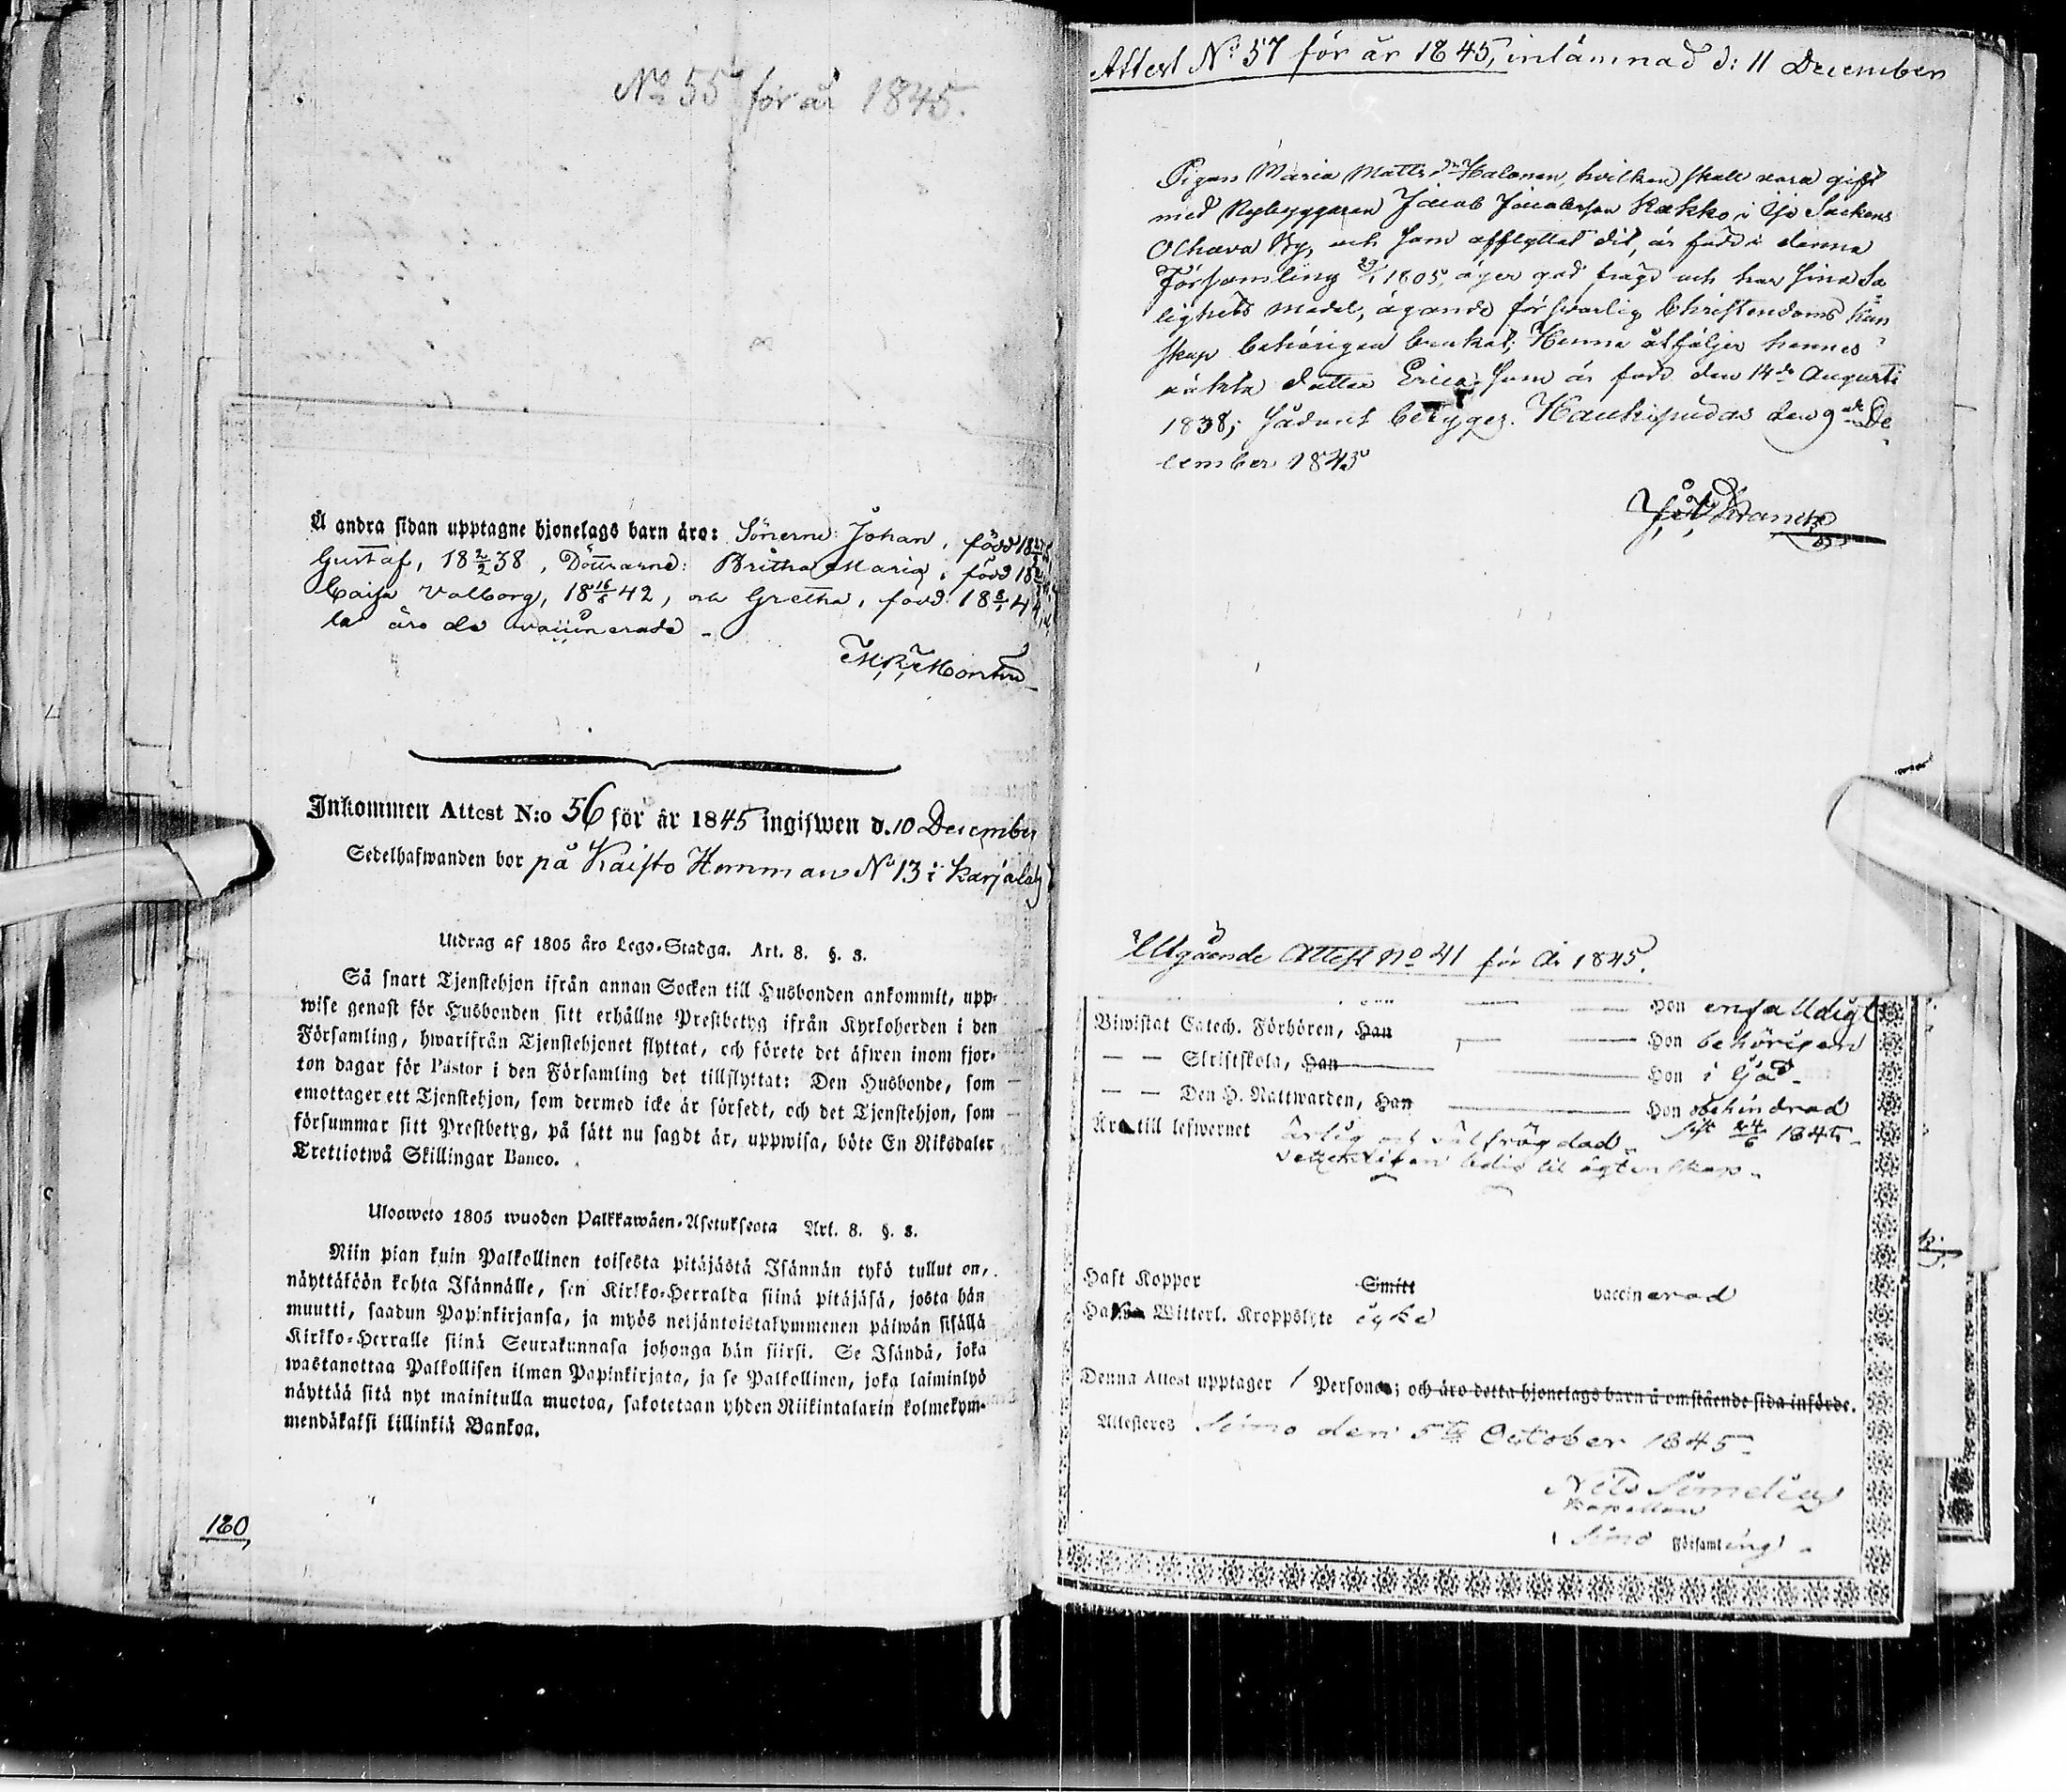 No 55 för år 1845.
Å andra sidan upptagne hjonelags barn äro: Sönerne: Johan, född
Gustaf, 18 2/2 38, Döttrarne: Britha Maria, född
Caisa Valborg, 18 16/6 42, och Gretha, född 18 8/1 44,
la äro de vaccinerade
Inkommen Attest N:o 56 för år 1845 ingifwen d. 10 December
Sedelhafwanden bor på Kaisto Hemman No 13 i Karjala
Utdrag af 1805 års Lego-Stadga. Art. 8. §. 3.
Så snart Tjenstehjon ifrån annan Socken till Husbonden ankommit, upp-
wise genast för Husbonden sitt erhållne Prestbetyg ifrån Kyrkoherden i den
Församling, hwarifrån Tjenstehjonet flyttat, och förete det äfwen inom fjor-
ton dagar för Pastor i den Församling det tillflyttat: Den Husbonde, som
emottager ett Tjenstehjon, som dermed icke är försedt, och det Tjenstehjon, som
försummar sitt Prestbetyg, på sätt nu sagdt är, uppwisa, böte En Riksdaler
Trettiotwå Skillingar Banco.
Uloosweto 1805 wuoden Palkkawäen-Asetuksesta Art. 8. §. 3.
Niin pian kuin Palkollinen toisesta pitäjästä Isännän tykö tullut on,
näyttäköön kohta Isännälle, sen Kirkko-Herralda siinä pitäjäsä, josta hän
muutti, saadun Papinkirjansa, ja myös neljäntoistakymmenen päiwän sisällä
Kirkko-Herralle siinä Seurakunnasa johonga hän siirsi. Se Isändä, joka
wastanottaa Palkollisen ilman Papinkirjata, ja se Palkollinen, joka laiminlyö
näyttää sitä nyt mainitulla muotoa, sakotetaan yhden Riikintalarin kolmekym-
mendäkaksi killinkiä Bankoa.
180
Attest No 57 för år 1845, inlämnad d: 11 December
Pigan Maria Mattsdr Halonen, hvilken skall vara gift
med Nybyggaren Jacob Jacobsson Kakko i Ijo Sockens
Olhava By, och som afflyttat dit, är född i denna
Församling 1805, äger god frägd och har sina Sa
lighets medel, ägande förswarlig Christendoms kun
skap behörigen brukat; Henne åtföljer hennes
oäkta dotter Erica som är född den 14de Augusti
1838; sådant betygas. Haukipudas den 9de De
cember 1845
Utgående Attest No 41 för år 1845.
Hon enfalldigt
Biwistat Catech. Förhören, Han — Hon behörigen
— — Skriftskola, Han — Hon i Ijo
— — Den H. Nattwarden, Han — Hon obehindrad
sist 24/6 1845
Är till lefwernet ärlig och välfrägdad
ledig till ägtenskap
Haft Koppor Smitt vaccinerad
Har Witterl. Kroppslyte icke
Denna Attest upptager 1 Person; och äro detta hjonelags barn å omstående sida införde.
Attesteres Simo den 5te October 1845
Nils Simelius
Kapellan
i Simo Församling